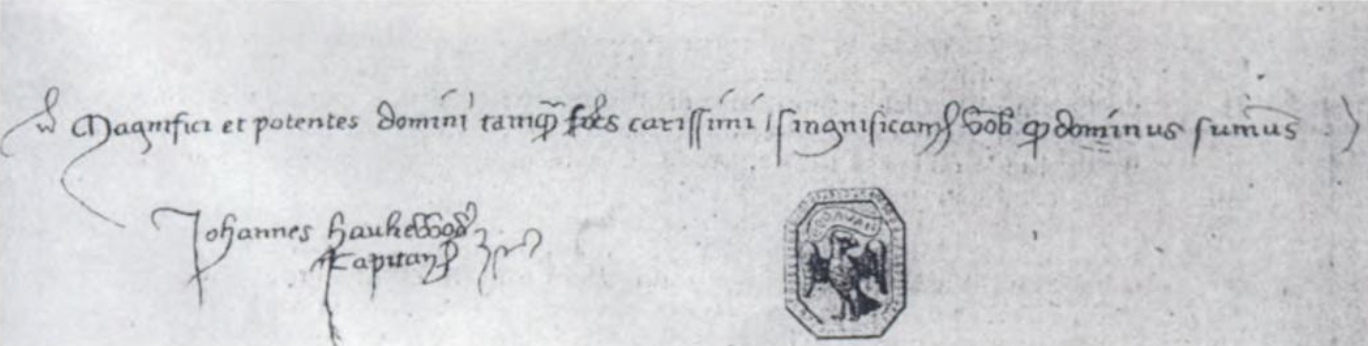 Magnifici et potentes domini tamq̄ fr̄es carissimi / singnificamꝰ vob̄ ꝙ dominus sumus
Johannes haukewod
Capitanꝰ